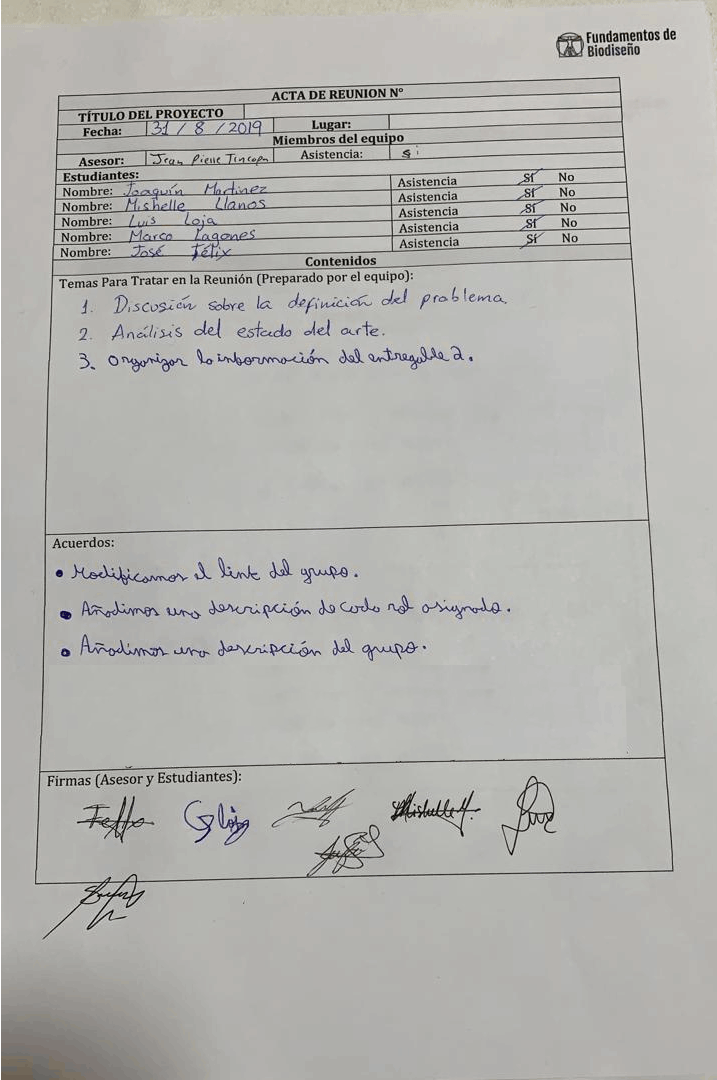 Fundamentos de
Biodiseño
ACTA DE REUNION N°
TÍTULO DEL PROYECTO
Fecha: 31 / 8 / 2019 Lugar:
Miembros del equipo
Asesor: Jean Pierre Tincopa Asistencia: si
Estudiantes:
Nombre: Joaquín Martinez Asistencia Sí No
Nombre: Mishelle Llanos Asistencia Sí No
Nombre: Luis Loja Asistencia Sí No
Nombre: Marco Lagones Asistencia Sí No
Nombre: José Félix Asistencia Sí No
Contenidos
Temas Para Tratar en la Reunión (Preparado por el equipo):
1. Discusión sobre la definición del problema
2. Análisis del estado del arte.
3. Organizar la información del entregable 2.
Acuerdos:
• Modificamos el link del grupo.
• Añadimos una descripción de cada rol asignado.
• Añadimos una descripción del grupo.
Firmas (Asesor y Estudiantes):
Mishelle